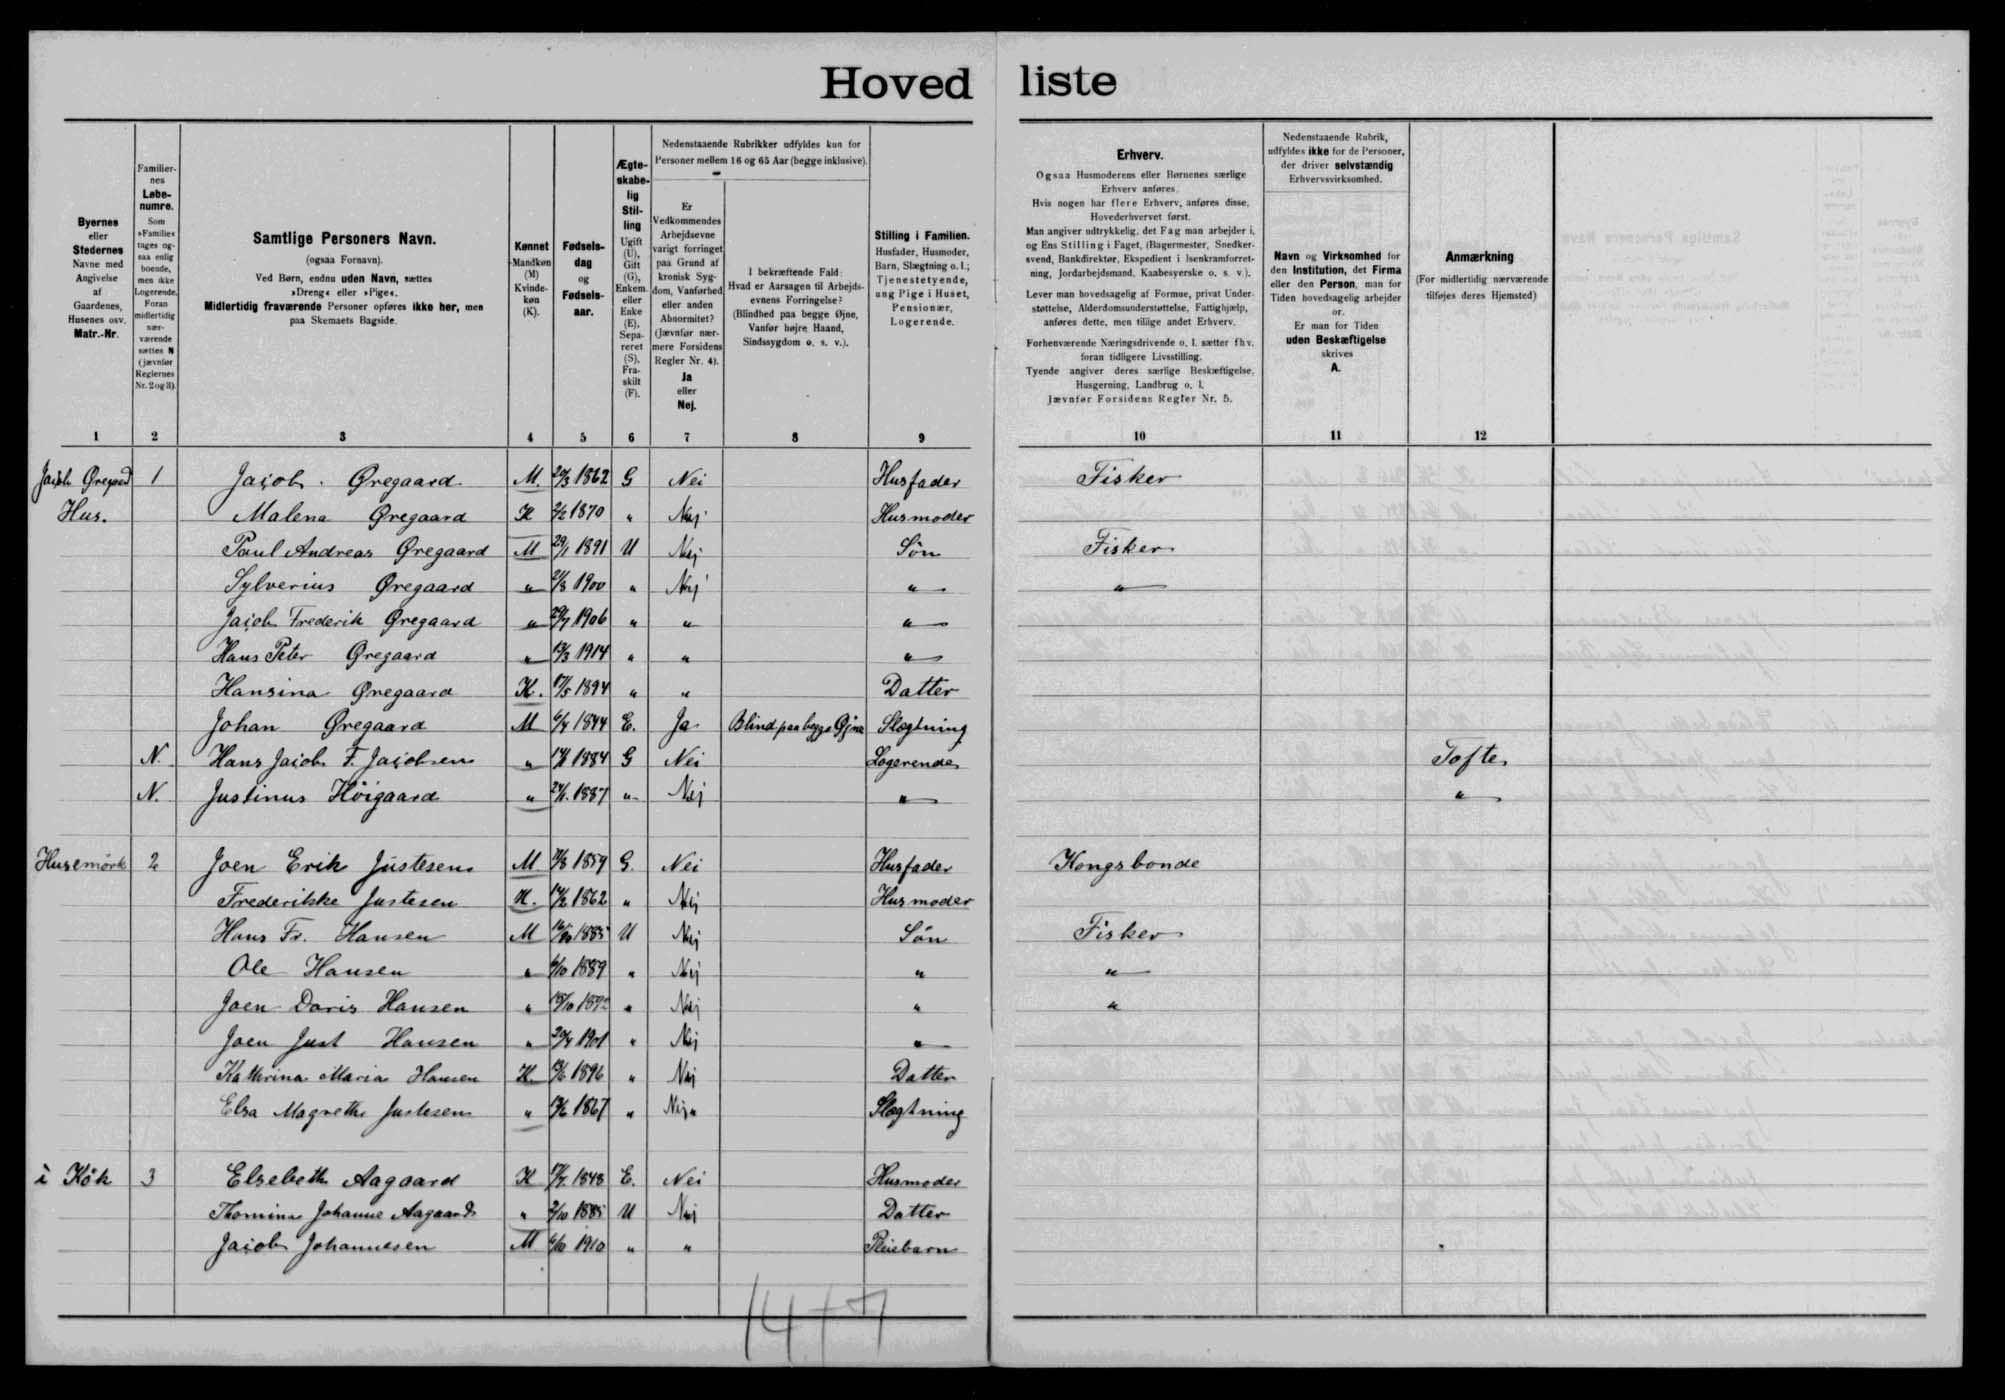 Hovedliste
Byernes eller Stedernes Navne med Angivelse af Gaardenes, Husenes osv. Matr.-Nr.
Familiernes Løbenumre. Som »Familie« tages ogsaa enlig boende, men ikke Logerende. Foran midlertidig nærværende sættes N (jævnfør Reglernes Nr. 2 og 3).
Samtlige Personers Navn. (ogsaa Fornavn). Ved Børn, endnu uden Navn, sættes »Dreng« eller »Pige«. Midlertidig fraværende Personer opføres ikke her, men paa Skemaets Bagside.
Kønnet Mandkøn (M) Kvindekøn (K).
Fødselsdag og Fødselsaar.
Ægteskabelig Stilling Ugift (U), Gift (G), Enkem. eller Enke (E), Separeret (S), Fraskilt (F).
Nedenstaaende Rubrikker udfyldes kun for Personer mellem 16 og 65 Aar (begge inklusive).
Er Vedkommendes Arbejdsevne varigt forringet paa Grund af kronisk Sygdom, Vanførhed eller anden Abnormitet? (Jævnfør nærmere Forsidens Regler Nr. 4). Ja eller Nej.
I bekræftende Fald: Hvad er Aarsagen til Arbejdsevnens Forringelse? (Blindhed paa begge Øjne, Vanfør højre Haand, Sindssygdom o. s. v.).
Stilling i Familien. Husfader, Husmoder, Barn, Slægtning o. l.; Tjenestetyende, ung Pige i Huset, Pensionær, Logerende.
Erhverv.
Ogsaa Husmoderens eller Børnenes særlige Erhverv anføres.
Hvis nogen har flere Erhverv, anføres disse, Hovederhvervet først.
Man angiver udtrykkelig, det Fag man arbejder i, og Ens Stilling i Faget, (Bagermester, Snedkersvend, Bankdirektør, Ekspedient i Isenkramforretning, Jordarbejdsmand, Kaabesyerske o. s. v.).
Lever man hovedsagelig af Formue, privat Understøttelse, Alderdomsunderstøttelse, Fattighjælp, anføres dette, men tillige andet Erhverv.
Forhenværende Næringsdrivende o. l. sætter fhv. foran tidligere Livsstilling.
Tyende angiver deres særlige Beskæftigelse, Husgerning, Landbrug o. l.
Jævnfør Forsidens Regler Nr. 5.
Nedenstaaende Rubrik, udfyldes ikke for de Personer, der driver selvstændig Erhvervsvirksomhed.
Navn og Virksomhed for den Institution, det Firma eller den Person, man for Tiden hovedsagelig arbejder for. Er man for Tiden uden Beskæftigelse skrives A.
Anmærkning (For midlertidig nærværende tilføjes deres Hjemsted)
1 2 3 4 5 6 7 8 9 10 11 12
Jacob Øregaard 1 Jacob Øregaard M. 1862 G Nei Husfader Fisker
Hus. Malena Øregaard K 2/2 1870 " Nej Husmoder
Poul Andreas Øregaard M 29/1 1891 U Nej Søn Fisker
Sylverius Øregaard " 2/3 1900 " Nej " "
Jacob Frederik Øregaard " 29/7 1906 " " "
Hans Peter Øregaard " 13/3 1914 " " "
Hansina Øregaard K. 17/5 1894 " " Datter
Johan Øregaard M 6/4 1844 E. Ja Blind paa begge Øjne Slægtning
N. Hans Jacob F. Jacobsen " 1884 G Nei Logerende Tofte
N. Justinus Höigaard " 1887 " Nej " "
Husemörk 2 Joen Erik Justesen M. 1859 G. Nei Husfader Kongsbonde
Frederikke Justesen K. 1862 " Nej Husmoder
Hans Fr. Hansen M 16/10 1885 U Nej Søn Fisker
Ole Hansen " 6/10 1889 " Nej " "
Joen Doris Hansen " 18/10 1892 " Nej " "
Joen Just Hansen " 20/4 1901 " Nej "
Kathrina Maria Hansen K 1896 " Nej Datter
Elsa Magrethe Justesen " 1867 " Nej Slægtning
i Kök 3 Elsebeth Aagaard K 1848 E. Nei Husmoder
Thomina Johanne Aagaard " 2/10 1885 U Nej Datter
Jacob Johannesen M 6/10 1910 " " Pleiebarn
14+7